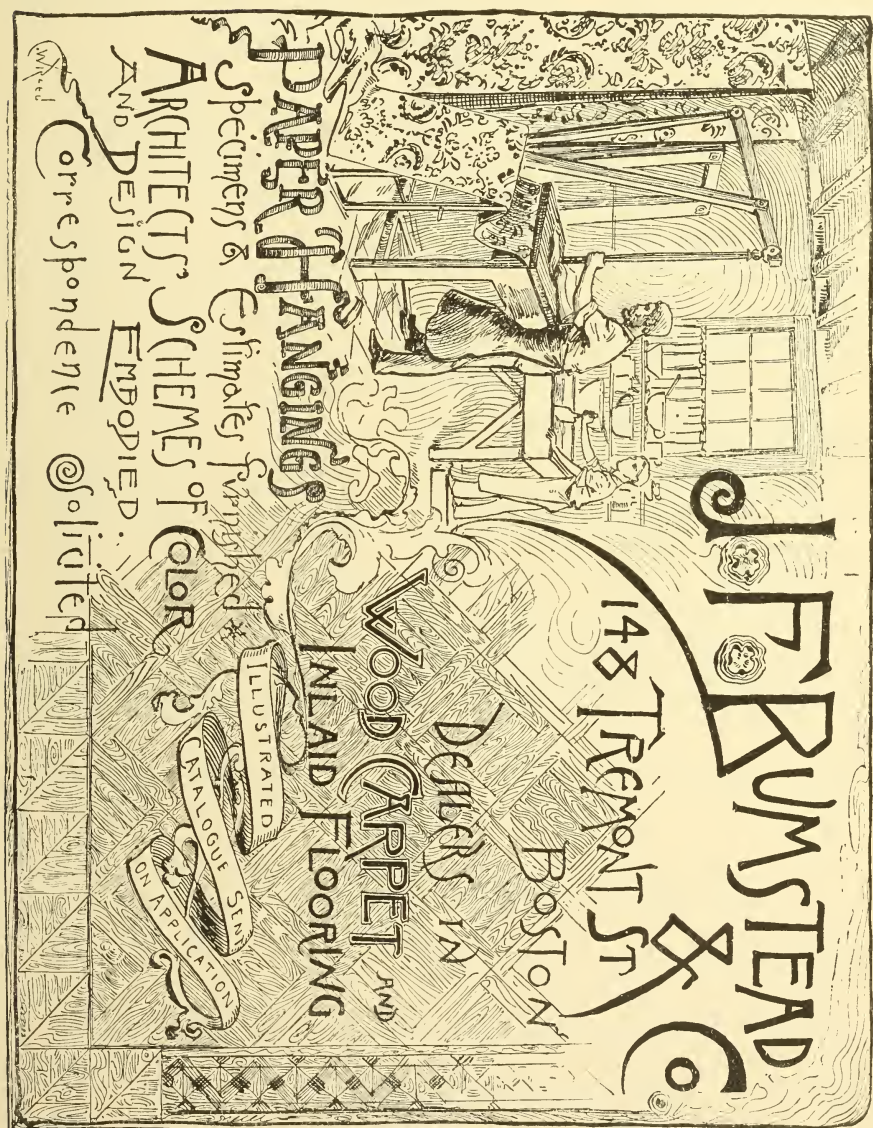 J·F·BUMSTEAD
& Co
148 TREMONT ST
BOSTON
DEALERS IN
WOOD CARPET AND
INLAID FLOORING
ILLUSTRATED
CATALOGUE SENT
ON APPLICATION
PAPER HANGINGS
Specimens & Estimates furnyshed
ARCHITECTS' SCHEMES OF COLOR
AND DESIGN EMBODIED:
Correspondence Solicited